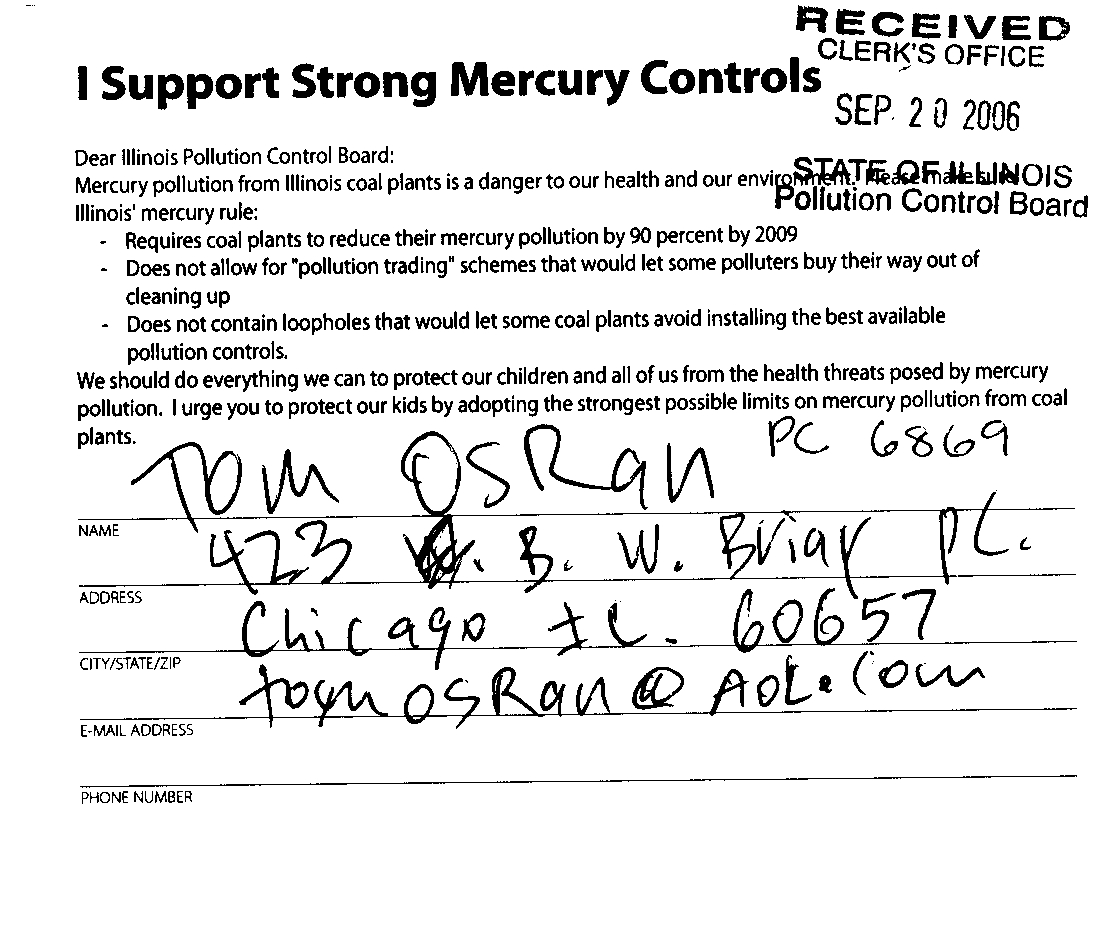 RECEIVED
CLERK'S OFFICE
SEP 20 2006
STATE OF ILLINOIS
Pollution Control Board
I Support Strong Mercury Controls
Dear Illinois Pollution Control Board:
Mercury pollution from Illinois coal plants is a danger to our health and our environment. Please make sure
Illinois' mercury rule:
- Requires coal plants to reduce their mercury pollution by 90 percent by 2009
- Does not allow for "pollution trading" schemes that would let some polluters buy their way out of
cleaning up
- Does not contain loopholes that would let some coal plants avoid installing the best available
pollution controls.
We should do everything we can to protect our children and all of us from the health threats posed by mercury
pollution. I urge you to protect our kids by adopting the strongest possible limits on mercury pollution from coal
plants.
PC 6869
TOM OSRan
NAME
423 B. W. Briar PL.
ADDRESS
Chicago IL. 60657
CITY/STATE/ZIP
tomOSRan@AOL.com
E-MAIL ADDRESS
PHONE NUMBER